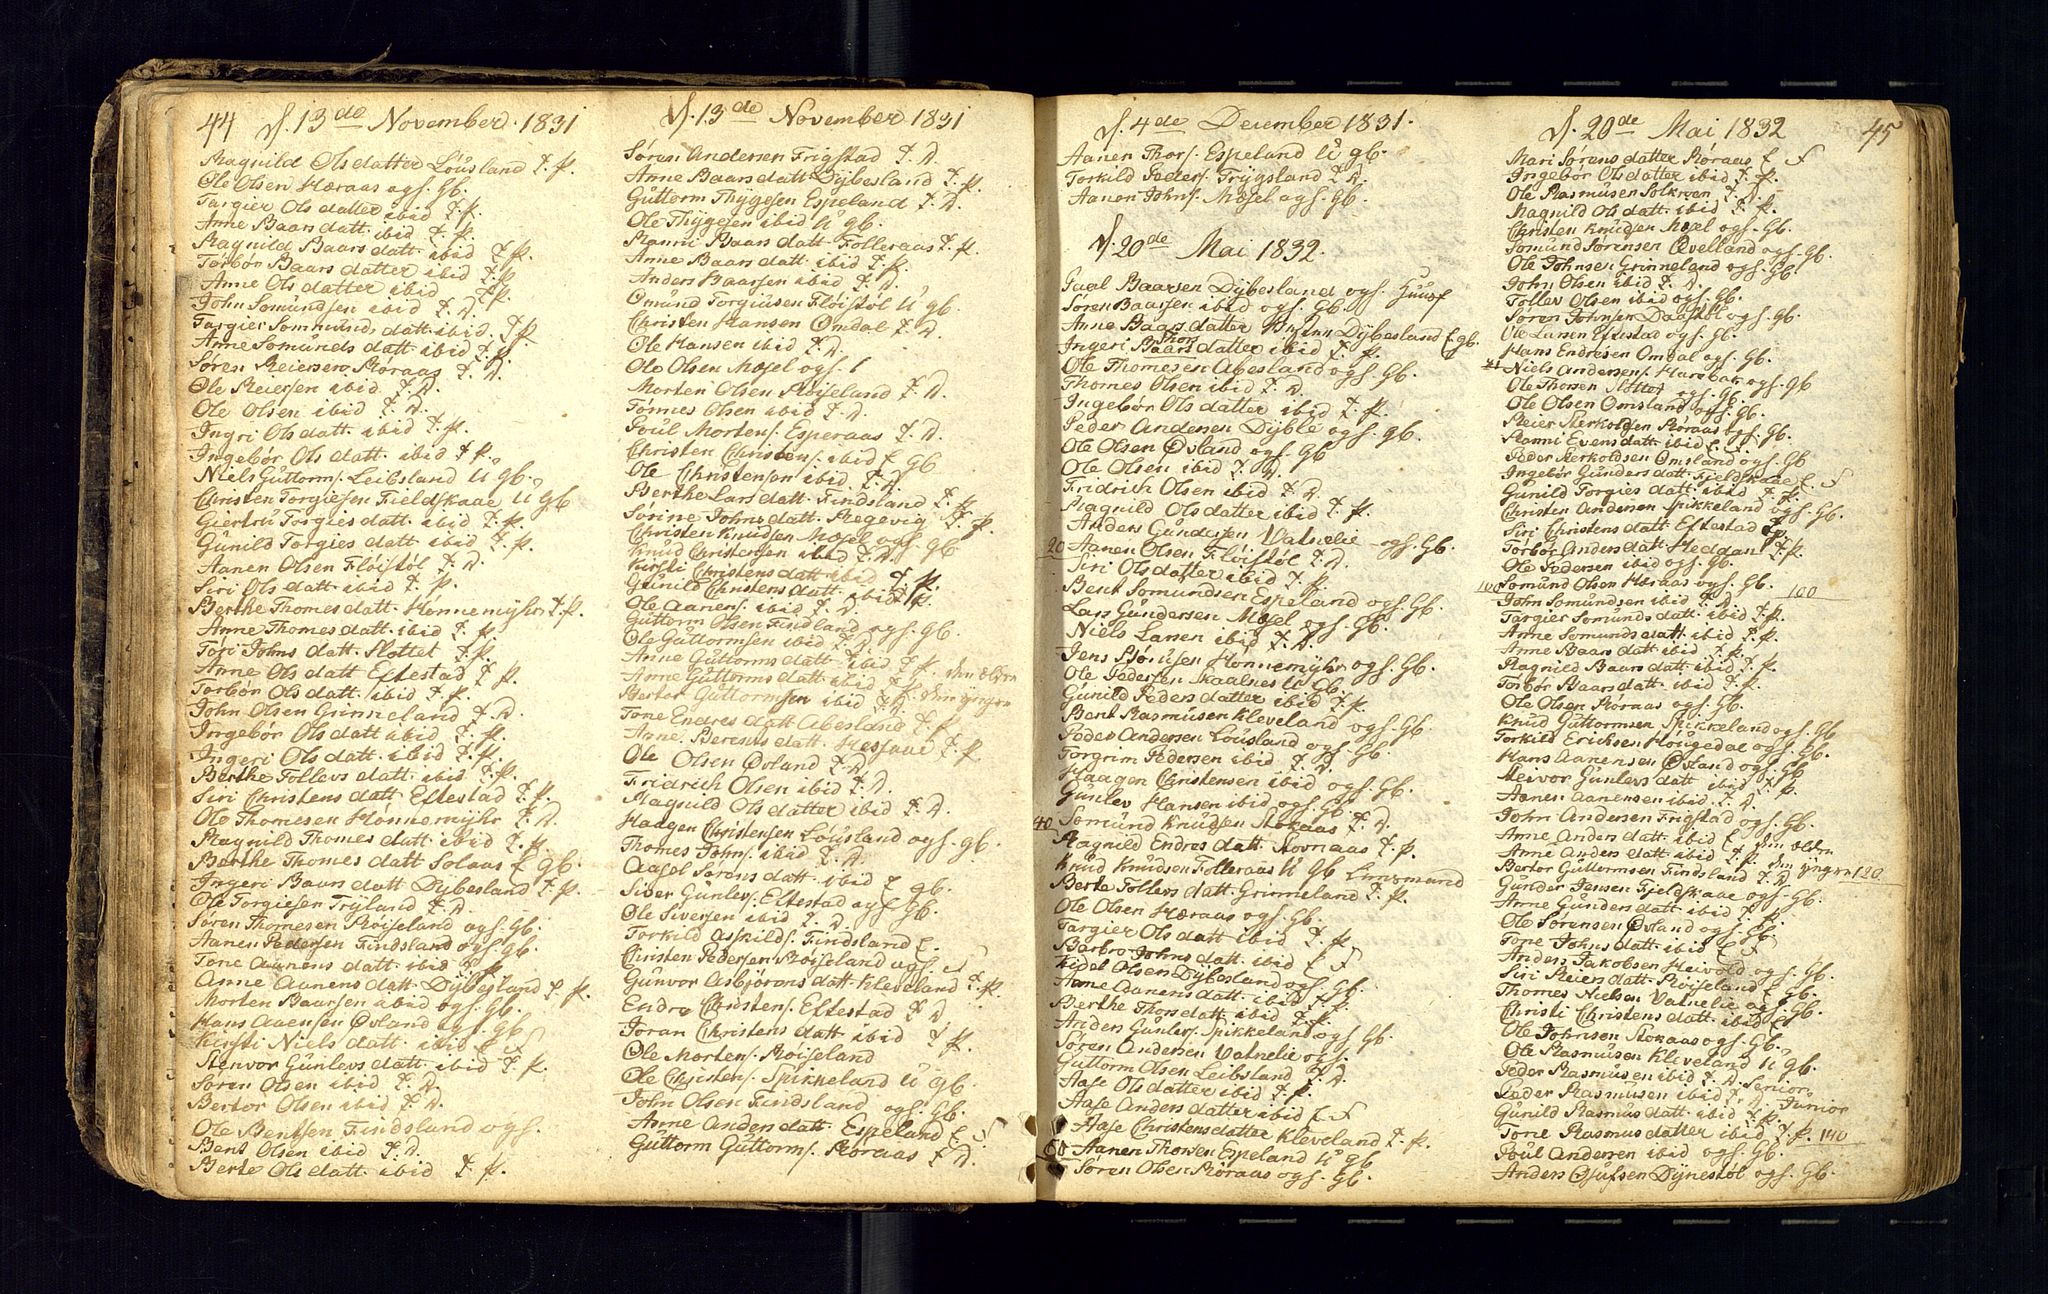 44 d. 13de November 1831
Magnild Olsdatter Lóusland T. P.
Ole Olsen Hæraas ogh. Gb.
Targier Olsdatter ibid T. P.
Anne Baars datt. ibid T. P.
Magnild Baars datt. ibid T. P.
Torbór Baars datter ibid T. P.
Anne Ols datter ibid T. P.
John Somundsen ibid T. D.
Targier Somunds datt. ibid T. P.
Anne Somunds datt. ibid T. P.
Sóren Reiersen Róraas T. D.
Ole Reiersen ibid T. D.
Ole Olsen ibid T. D.
Ingri Ols datt. ibid T. P.
Ingebór Ols datt. ibid T. P.
Niels Guttorms. Leibsland U Gb.
Christen Torgiesen Fieldskaae U Gb
Giertru Torgies datt. ibid T. P.
Gunild Torgies datt. ibid T. P.
Aanen Olsen Flóistól T. D.
Siri Ols datt. ibid T. P.
Berthe Thomes datt. Hónnemyhr T. P.
Anne Thomes datt. ibid T. P.
Tori Johns datt. Slottet T. P.
Anne Ols datt. Eftestad T. P.
Torbór Ols datt. ibid T. P.
John Olsen Grinneland T. D.
Ingebór Ols datt. ibid T. P.
Ingeri Ols datt. ibid T. P.
Berthe Tollevs datt. ibid T. P.
Siri Christens datt. Eftestad T. P.
Ole Thomesen Hónnemyhr T. D.
Magnild Thomes datt. ibid T. P.
Berthe Thomes datt. Solaas E gb.
Ingeri Baars datt. Dybesland T. P.
Ole Torgiesen Tryland T. D.
Sóren Thomesen Róiseland ogh. Gb.
Aanen Pedersen Findsland ogh Gb.
Tone Aanens datt. ibid T. P.
Anne Aanens datt. Dybesland T. P.
Morten Baarsen ibid ogh. Gb.
Hans Aaensen Óvland ogh. Gb
Kirsti Niels datt. ibid E F
Stenvor Gunlevs datt. ibid T. P.
Sóren Olsen ibid T. D.
Bertor Olsen ibid T. D.
Ole Bentsen Findsland ogh.
Bent Olsen ibid T. D.
Berte Ols datt. ibid T. P.
d. 13de November 1831
Sóren Andersen Frigstad T. D.
Anne Baars datt. Dybesland T. P.
Guttorm Thygesen Espeland T. D.
Ole Thygesen ibid U gb.
Ranni Baars datt. Tolleraas T. P.
Anne Baars datt. ibid T. P.
Anders Baarsen ibid T. D.
Omund Torgiusen Flóistól U gb.
Christen Hansen Omdal T. D.
Ole Hansen ibid T. D.
Ole Olsen Mosel ogh.
Morten Olsen Róiseland T. D.
Tónnes Olsen ibid T. D.
Poul Mortens. Esperaas T. D.
Christen Christens. ibid E Gb
Ole Christensen ibid. T. D.
Berthe Lars datt. Findsland T. P.
Sórine Johns datt. Regevig T. P.
Christen Knudsen Mosel ogh. Gb
Knud Christensen ibid T. D.
Kirsti Christens datt. ibid T. P.
Gunild Christens datt. ibid T. P.
Ole Aanens. ibid T. D.
Guttorm Olsen Findland ogh. Gb.
Ole Guttormsen ibid T. D.
Anne Guttorms datt. ibid T. P. den ældre
Anne Guttorms datt. ibid T. P. den yngre
Bertor Guttormsen ibid T. D.
Tone Endres datt. Abesland T. P.
Anne Berents datt. T. P.
Ole Olsen Óvland T. D.
Fridrich Olsen ibid T. D.
Magnild Ols datter ibid T. D.
Haagen Christensen Lóusland ogh. Gb.
Thomes Johns. ibid T. D.
Aasel Sórens datt. ibid E gb.
Siver Gunlevs. Eftestad ogh Gb.
Ole Siversen ibid T. D.
Torkild Askilds. Findsland E.
Christen Pedersen Róiseland ogh. F
Gunvor Asbjórens datt. Kleveland T. P.
Endre Christens. Eftestad T. D
Joran Christens datt. ibid T. P.
Ole Mortens. Róiseland
Ole Christens. Spikkeland U gb
John Olsen Findsland ogh. Gb.
Anne Anders datt. Espeland E F
Guttorm Guttorms. Róraas T. D.
d. 4de December 1831.
Aanen Thors. Espeland U gb.
Torkild Peders. Trygsland T. D.
Aanon Johns. Mosel ogh. Gb.
d. 20de Mai 1832.
Paal Baarsen Dybesland ogh. Huusf
Sóren Baarsen ibid ogh. Gb.
Anne Baars datter Dybesland E gb.
Ingeri Thor Baars datter ibid T. P.
Ole Thomesen Abesland ogh. Gb.
Thomes Olsen ibid T. D.
Ingebór Ols datter ibid T. P.
Peder Andersen Dyble ogh. Gb.
Ole Olsen Óvland ogh. Gb
Ole Olsen ibid T. D.
Fridrich Olsen ibid T. D.
Magnild Ols datter ibid T. P.
Anders Gundersen Vatnelie ogh. Gb.
20 Aanen Olsen Flóistól T. D.
Siri Ols datter ibid T. P.
Bent Somundsen Espeland ogh. Gb.
Lars Gundersen Mosel ogh. Gb.
Niels Larsen ibid T. D.
Jens Stónusen Hónnemyhr ogh. Gb.
Ole Pedersen Skaalnes U Gb.
Gunild Peders datter ibid T. P.
Bent Rasmusen Kleveland ogh. Gb.
Peder Andersen Lóusland ogh. Gb.
Torgrim Pedersen ibid T. D.
Haagen Christensen ibid ogh. Gb.
Gunlev Hansen ibid ogh. Gb.
40 Somund Knudsen Stokaas T. D.
Magnild Endres datt. Stovraas T. P.
Knud Knudsen Tolleraas U Gb Linnemand
Berte Tollevs datt. Grinneland T. P.
Ole Olsen Hæraas ogh. Gb.
Targier Ols datt. ibid T. P.
Barbro Johns datt. ibid E F
Kidel Olsen Dybesland ogh. Gb.
Anne Aanens datt. ibid T. P.
Berthe Thors datt. ibid T. P.
Anders Gunlevs. Spikkeland ogh. Gb.
Sóren Andersen Vatnelie ogh.
Guttorm Olsen Leibsland T. D.
Aase Ols datter ibid T. P.
Aase Anders datter ibid E F
Aase Christens datter Kleveland T. P.
60 Aanen Thorsen Espeland U gb
Sóren Olsen Róraas ogh. Gb.
d. 20de Mai 1832 45
Mari Sórens datter Róraas E F
Ingebór Ols datter ibid T. P.
Ole Rasmusen Solkroen T. D.
Magnild Ols datt. ibid T. P.
Christen Knudsen Mosel ogh. Gb.
Somund Sórensen Qvelland ogh. Gb.
Ole Johnsen Grinneland ogh. Gb
John Olsen ibid T. D.
Tollev Olsen ibid ogh. Gb.
Sóren Johnsen Daastól ogh. Gb.
Ole Larsen Eftestad ogh. Gb.
Hans Endresen Omdal ogh. Gb.
Niels Andersen Harsbak ogh. Gb
Ole Thorsen Slottet ogh. Gb.
Ole Olsen Omsland ogh. Gb.
Reier Terkoldsen Róraas ogh. Gb.
Ranni Evens datt. ibid E F
Peder Terkoldsen Omsland ogh. Gb
Ingebór Gunders datt. Fjeldskaae E F
Gunild Torgies datt. ibid T. P.
Christen Andersen Spikkeland ogh. Gb.
Siri Christens datt. Eftestad T. P.
Torbór Anders datt. Heddan T. P.
Ole Pedersen ibid ogh. Gb.
100 Somund Olsen Hæraas ogh. Gb. 100
John Somundsen ibid T. D.
Targier Somunds datt. ibid T. P.
Anne Somunds datt. ibid T. P.
Anne Baars datt. ibid T. P.
Magnild Baars datt. ibid T. P.
Torbór Baars datter ibid T. P.
Ole Olsen Róraas ogh. Gb.
Knud Guttormsen Spikkeland ogh. Gb
Torkild Ericksen Hougedal ogh. Gb.
Hans Aanensen Óvland ogh. Gb
Steivor Gunlevs datt. ibid T. P.
Aanen Aanensen ibid T. D.
John Andersen Frigstad ogh. Gb.
Anne Anders datt. ibid E den ældre
Anne Anders datt. ibid T. P. den yngre
Bertor Guttormsen Findsland T. D 120
Gunder Jensen Fjeldskaae ogh. Gb.
Anne Gunders datt. ibid T. P.
Ole Sórensen Óvland ogh. Gb.
Tone Johns datt. ibid E F
Anders Jakobsen Heivold ogh. Gb.
Siri Reiers datt. Róiseland E Gb.
Thomes Nielsen Vatnelie ogh. Gb.
Christi Christens datt. ibid E F
Ole Johnsen Stokaas ogh. Gb.
Ole Rasmusen Kleveland U gb.
Peder Rasmusen ibid T. D. Senior
Peder Rasmusen ibid T. D. Junior
Gunild Rasmus datt. ibid T. P.
Tone Rasmus datter ibid T. P. 140
Poul Andersen ibid ogh. Gb.
Anders Osufsen Dynestól ogh. Gb.